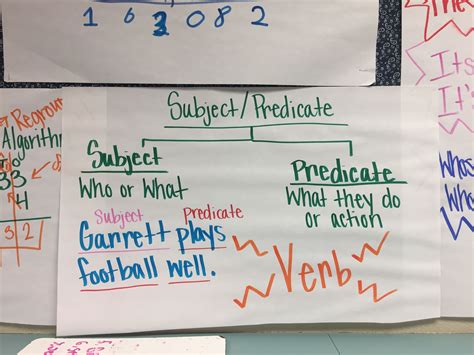 1 6 3 0 8 2
The
Regroup
Algorithm
33
4
3 2
Subject/Predicate
Subject
Who or What
Predicate
What they do
or action
Subject Predicate
Garrett plays
football well.
Verb
Its
It's
Whos